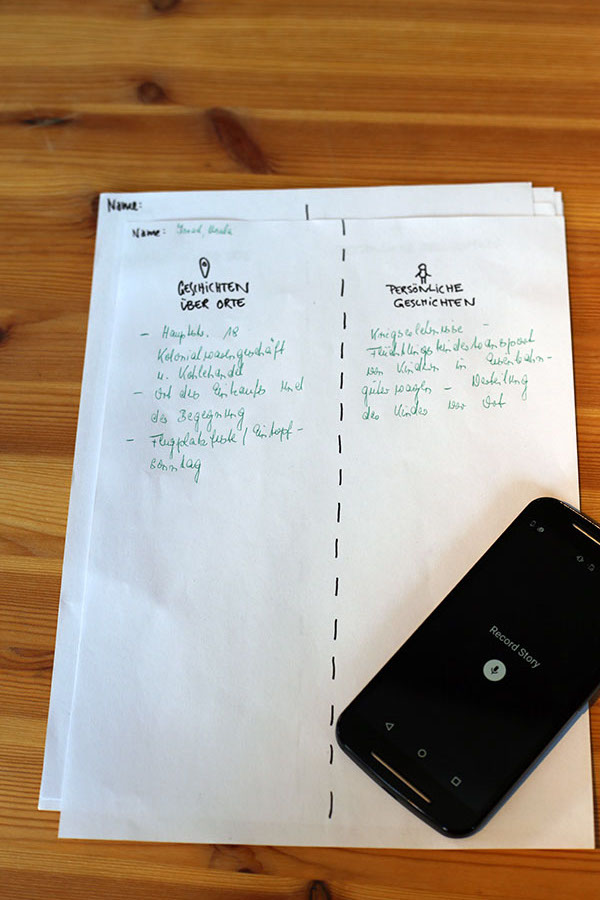 Name:
Name:
GESCHICHTEN
ÜBER ORTE
- Hauptstr. 18
Kolonialwarengeschäft
u. Kohlehandel
- Ort des Einkaufes und
der Begegnung
- Flugplatzfeste / Eintopf-
sonntag
PERSÖNLICHE
GESCHICHTEN
Kriegserlebnisse -
Flüchtlingskindertransport
von Kindern in Eisenbahn-
güterwagen - Verteilung
der Kinder vor Ort
Record Story